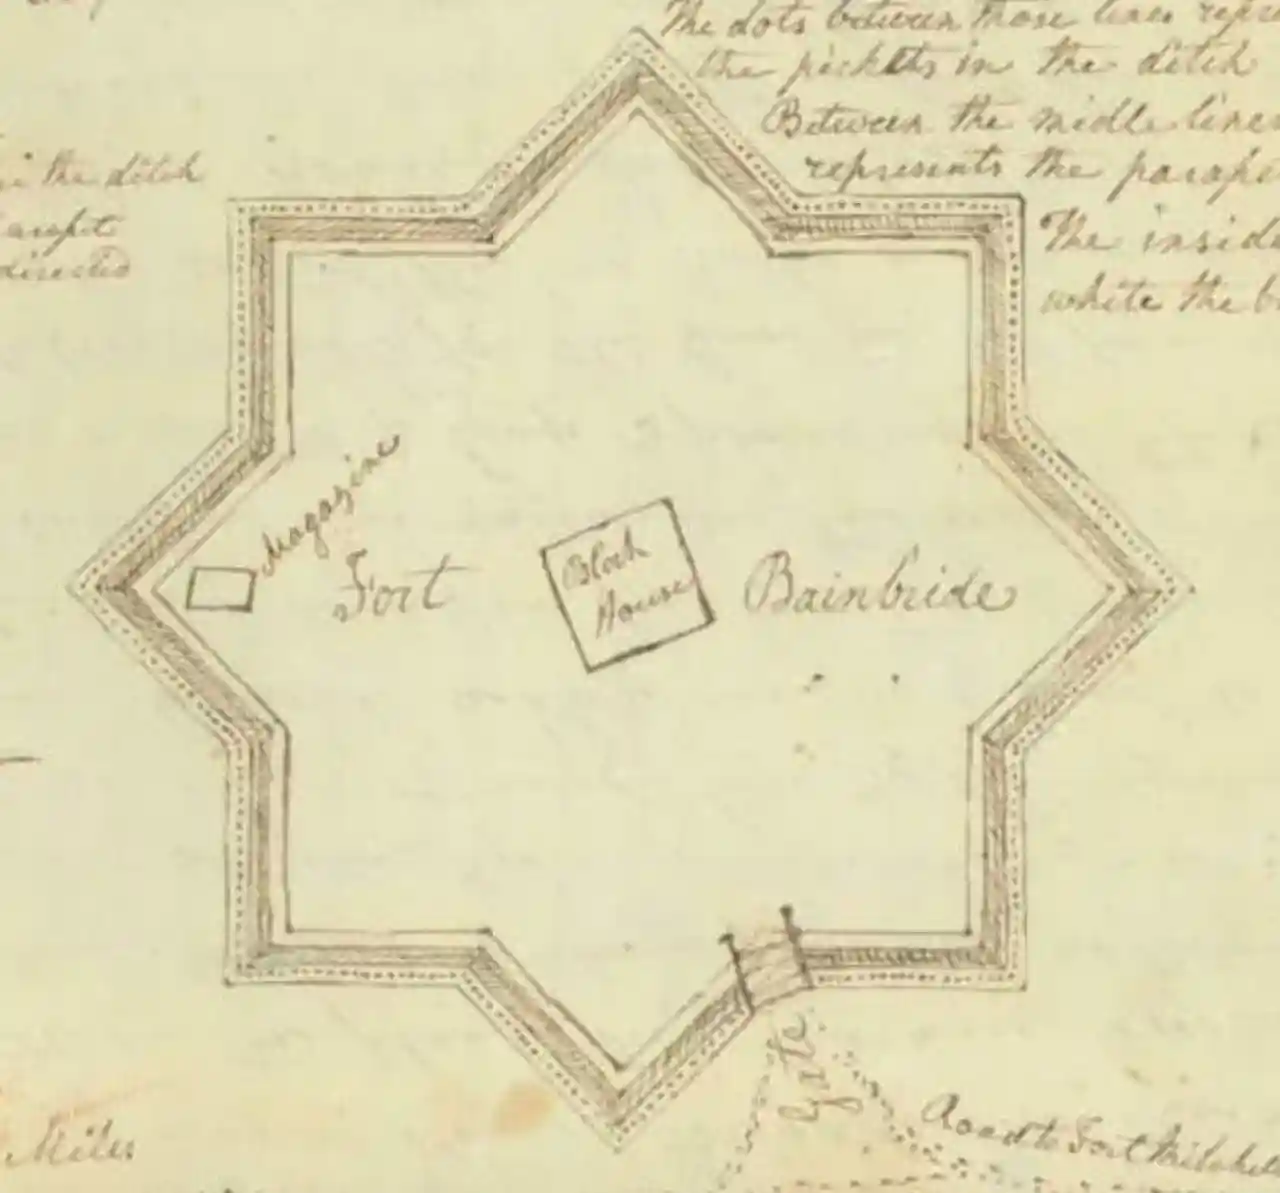 The dots between those lines repre
the pickets in the ditch
Between the midle lines
represents the parape
The inside
white the b
in the ditch
arapit
directed
Magazine
Fort
Block
House
Bainbride
Gate
Road to Fort Mitchel
Miles